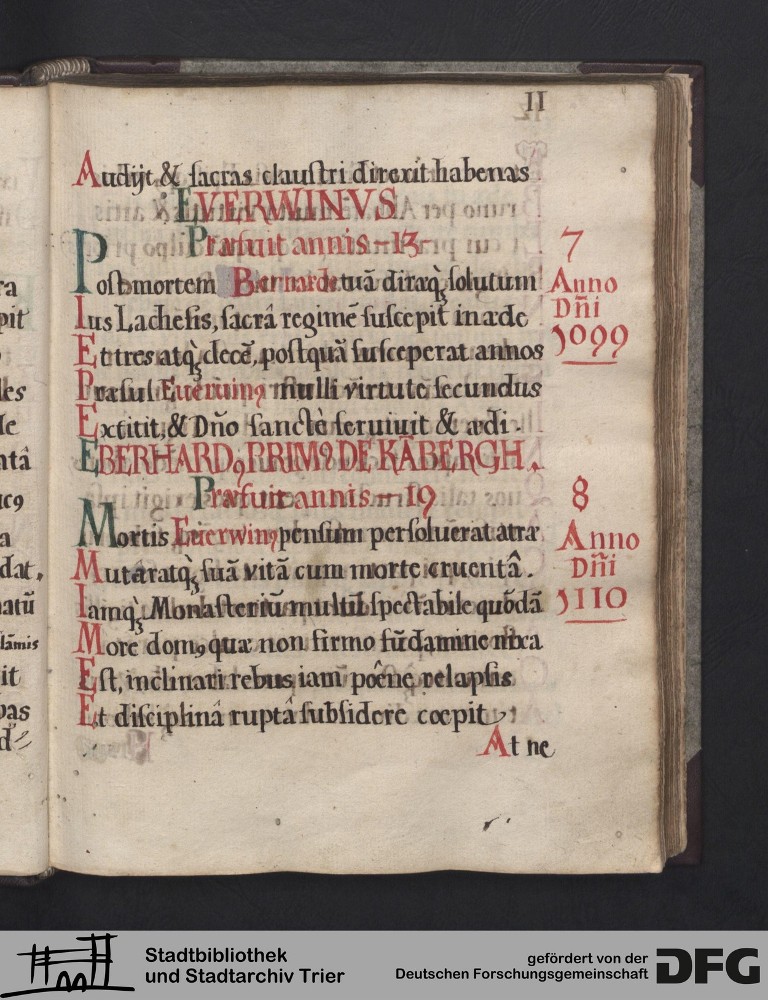 II
Audijt & sacras claustri direxit habenas
EVERWINVS
Præfuit annis -13-
Post mortem Bernarde tuã diraq̃ solutum
Ius Lachesis, sacrâ regimẽ suscepit in æde
Et tres atq̃ decẽ, postquã susceperat annos
Præsul Euerwinꝰ nulli virtute secundus
Extitit, & Dño sanctè seruiuit & ædi.
7
Anno
Dñi
1099
EBERHARDꝰ PRIMꝰ DE KÃBERGH.
Præfuit annis - 19
Mortis Euerwinꝰ pensum persoluerat atræ
Mutaratq̃ suã vitã cum morte cruentâ.
Iamq̃ Monasteriũ multũ spectabile quõdã
More domꝰ quæ non firmo fũdamine nixa
Est, inclinari rebus iam poêne relapsis
Et disciplinâ ruptâ subsidere coepit,
8
Anno
Dñi
1110
At ne
ra
pit
les
le
ntâ
ucꝰ
a
dat,
natũ
lâmis
it
vas
d
Stadtbibliothek
und Stadtarchiv Trier
gefördert von der
Deutschen Forschungsgemeinschaft
DFG